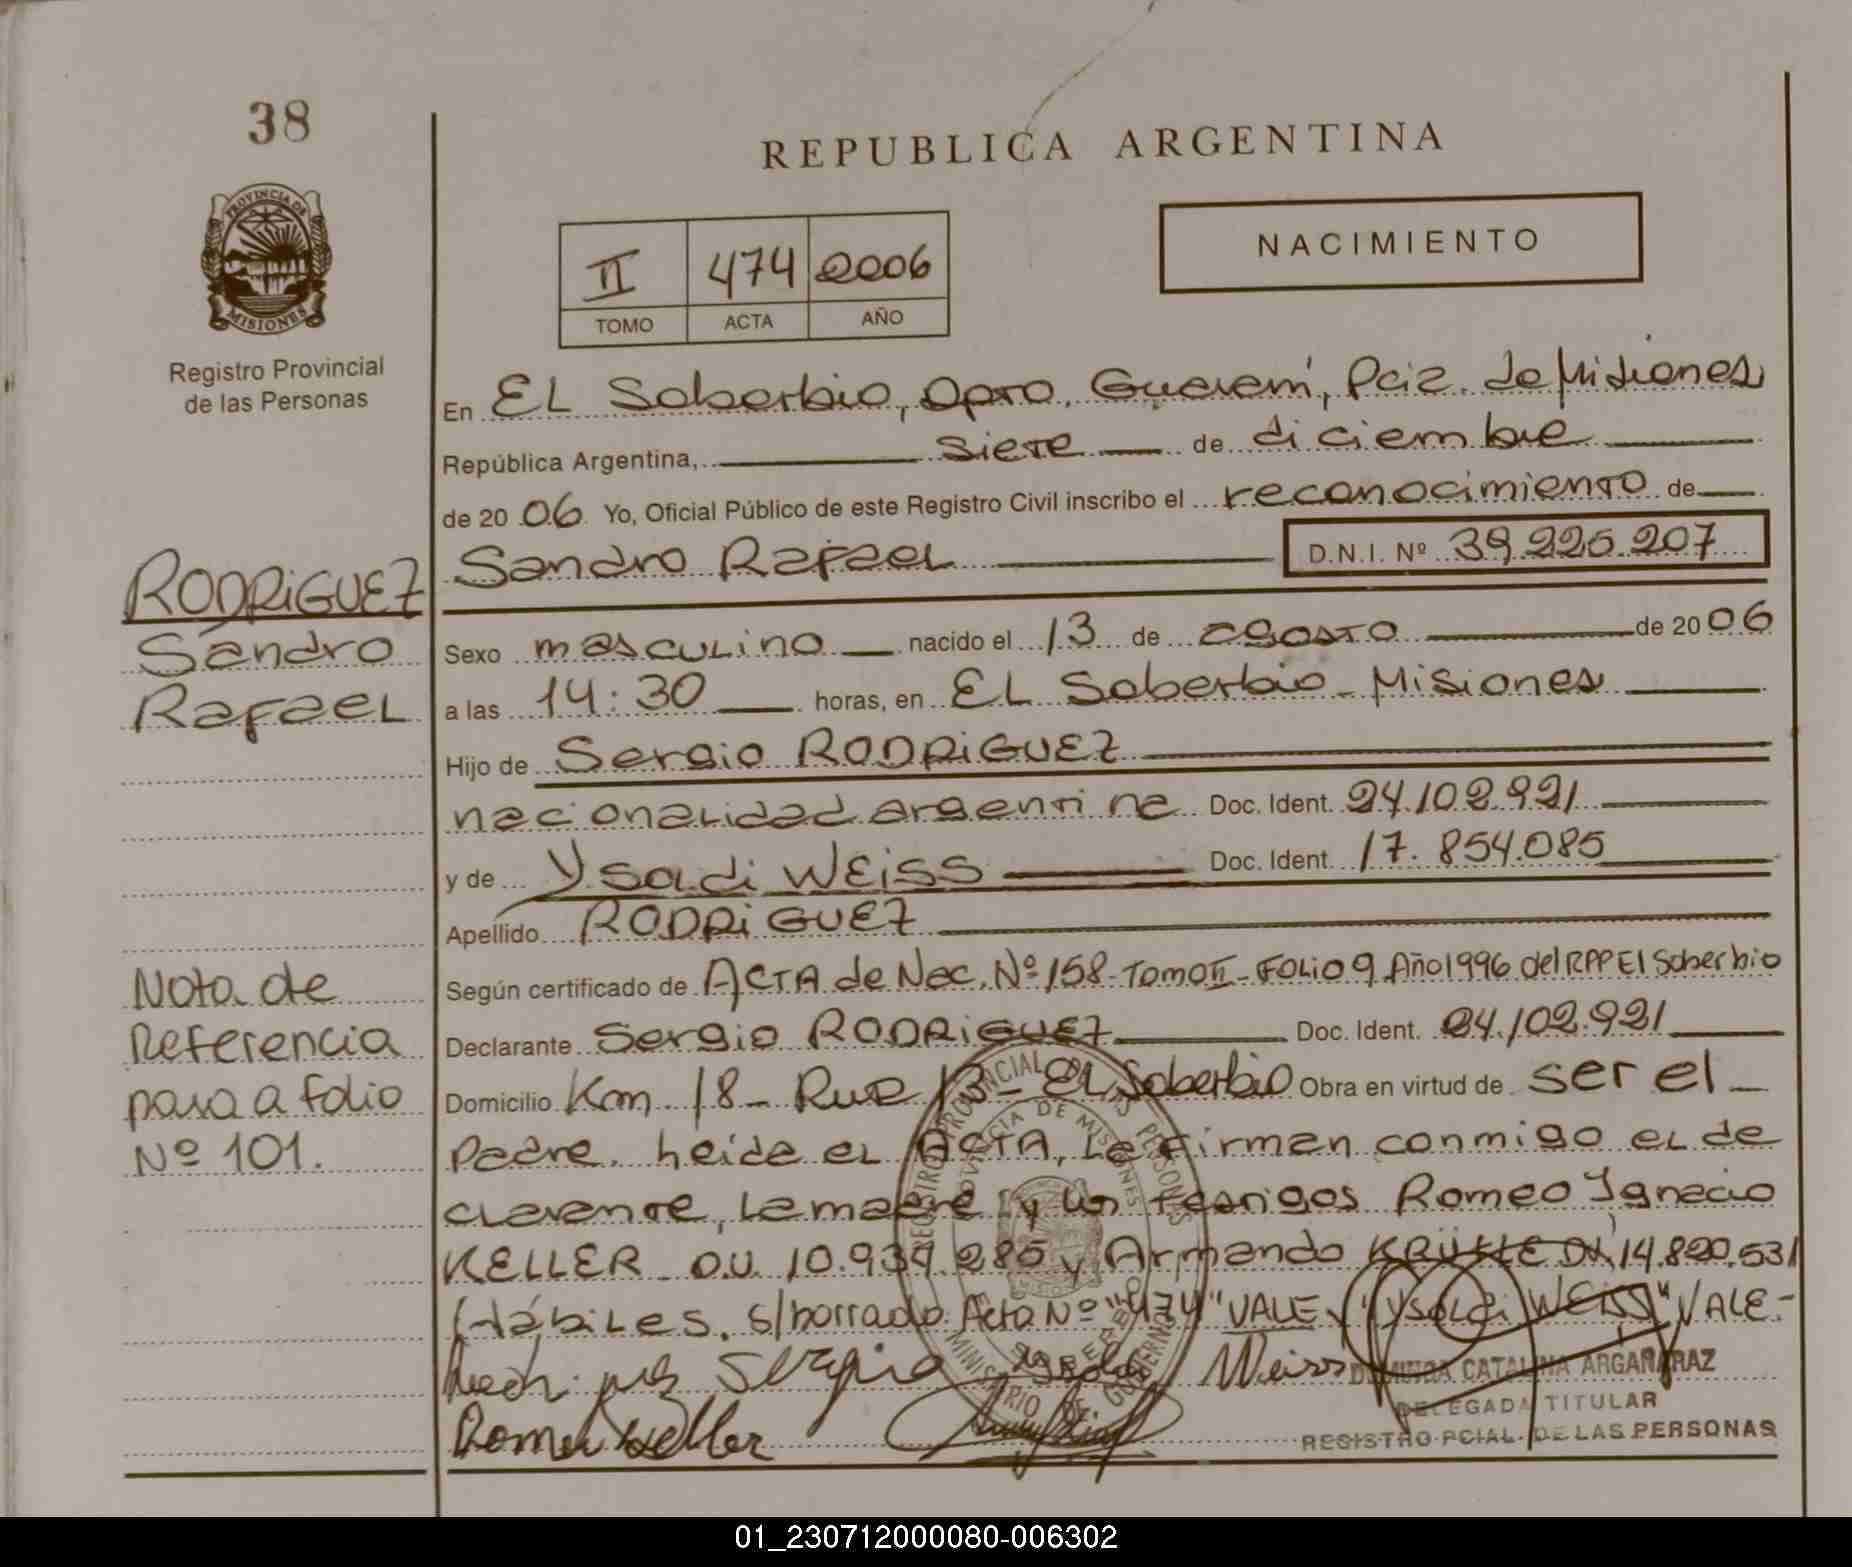 38
REPUBLICA ARGENTINA
PROVINCIA DE
MISIONES
Registro Provincial
de las Personas
II 474 2006
TOMO ACTA AÑO
NACIMIENTO
En EL Soberbio, Dpto. Guaraní, Pcia. de Misiones
República Argentina, siete de diciembre
de 2006 Yo, Oficial Público de este Registro Civil inscribo el reconocimiento de
Sandro Rafael D.N.I. Nº 39.226.207
RODRIGUEZ
Sandro
Rafael
Sexo masculino nacido el 13 de agosto de 2006
a las 14:30 horas, en EL Soberbio - Misiones
Hijo de Sergio RODRIGUEZ
nacionalidad argentina Doc. Ident. 24.102.921
y de Ysoldi WEISS Doc. Ident. 17.854.085
Apellido RODRIGUEZ
Según certificado de ACTA de Nac. Nº 158-Tomo II-FOLIO 9 Año 1996 del RPP El Soberbio
Declarante Sergio RODRIGUEZ Doc. Ident. 24.102.921
Domicilio Km. 18 - Ruta 13 - EL Soberbio Obra en virtud de ser el
Padre. heida el ACTA, La firman conmigo el de
clarante, la madre y los testigos Romeo Ignacio
KELLER D.U. 10.939.285 y Armando 14.820.531
Hábiles. s/borrado Acta Nº "474" VALE, "Ysoldi WEISS" VALE-
Nota de
Referencia
pasa a folio
Nº 101.
Rodriguez Sergio Weiss
Romeo Keller
CATALINA ARGAÑARAZ
DELEGADA TITULAR
REGISTRO PCIAL. DE LAS PERSONAS
01_230712000080-006302